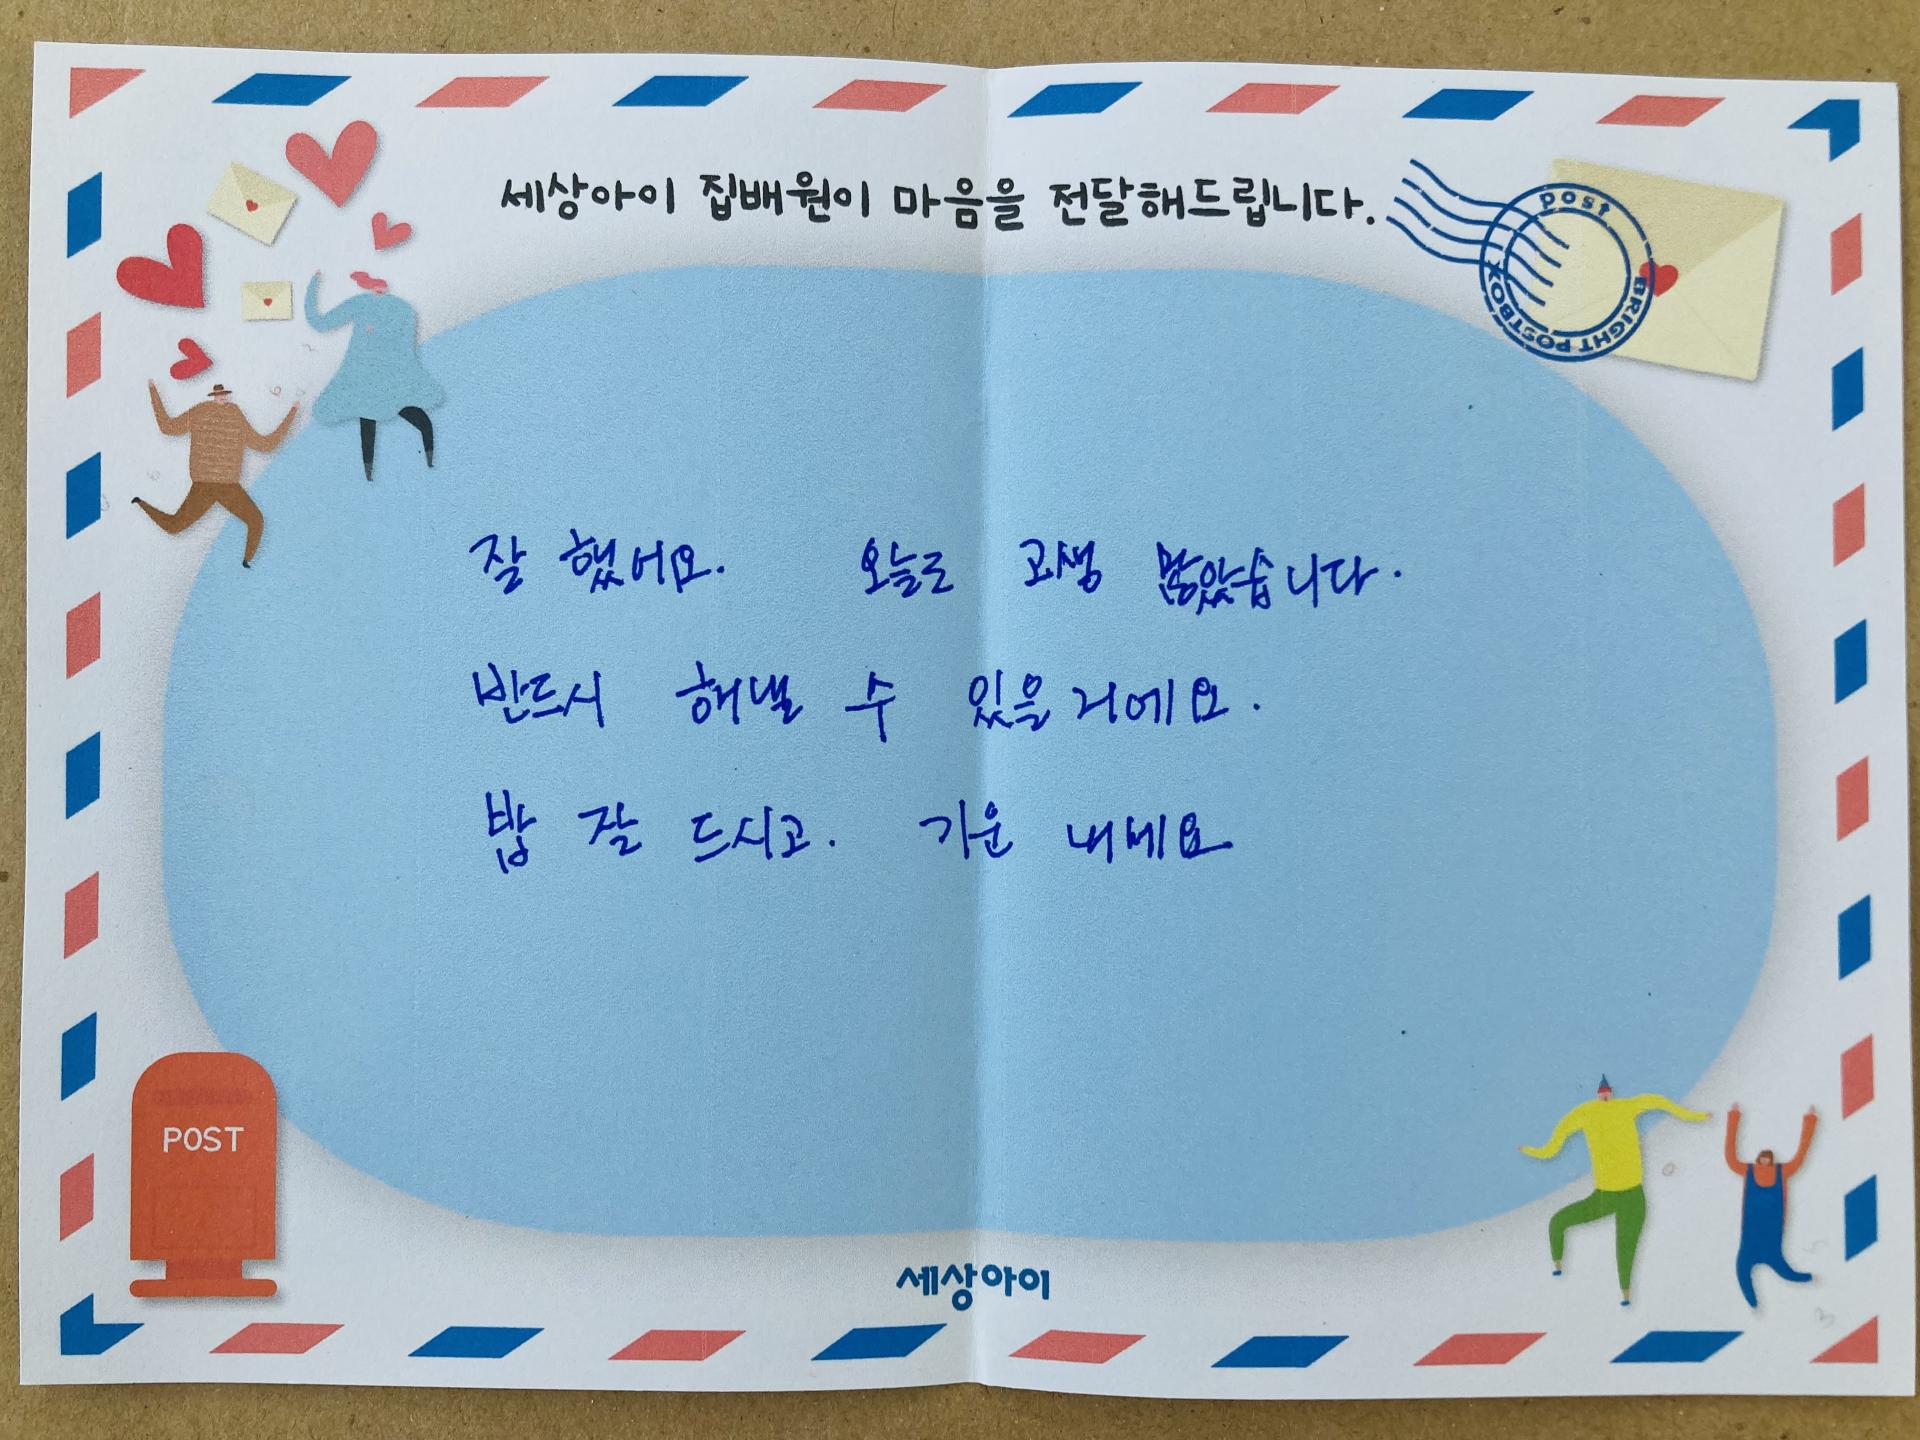 세상아이 집배원이 마음을 전달해드립니다.
post
BRIGHT POSTBOX
잘 했어요. 오늘도 고생 많았습니다.
반드시 해낼 수 있을거에요.
밥 잘 드시고. 기운 내세요
POST
세상아이